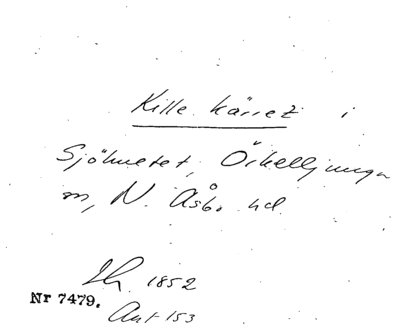 Kille kärret i
Sjöhuset, Örkelljunga
m, N. Åsbo hd.
1852
Nr 7479.
Akt 153